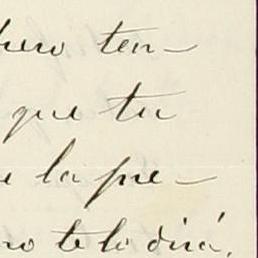 pero ten-
que tu
la pre-
te lo dirá.